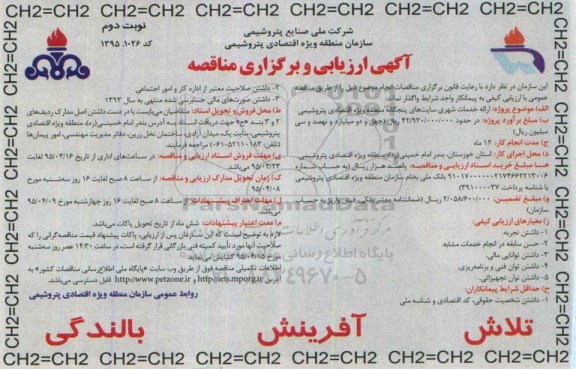 CH2=CH2 CH2=CH2 CH2=CH2 CH2=CH2 CH2=CH2 CH2=CH2 CH2=CH2
شرکت ملی صنایع پتروشیمی
سازمان منطقه ویژه اقتصادی پتروشیمی
نوبت دوم
کد ۱۰۲۶، ۱۳۹۵
آگهی ارزیابی و برگزاری مناقصه
این سازمان در نظر دارد با رعایت قانون برگزاری مناقصات انجام موضوع ذیل را از طریق مناقصه
عمومی با ارزیابی کیفی به پیمانکار واجد شرایط واگذار نماید.
الف) موضوع پروژه: ارائه خدمات شهری سایت‌های پنجگانه منطقه ویژه اقتصادی پتروشیمی
ب) مبلغ برآورد پروژه: در حدود ۴۲/۹۳۰/۰۰۰/۰۰۰ ریال (چهل و دو میلیارد و نهصد و سی
میلیون ریال)
ج) مدت انجام کار: ۱۲ ماه
د) محل اجرای کار: استان خوزستان، بندر امام خمینی (ره)، منطقه ویژه اقتصادی پتروشیمی
با شناسه پرداخت ۳۹۱۰۰۰۰۳۷
و) مبلغ تضمین: ۲/۰۵۸/۶۰۰/۰۰۰ ریال (ضمانتنامه معتبر بانکی، فیش واریزی به حساب
سازمان)
ز) معیارهای ارزیابی کیفی:
۱- داشتن تجربه.
۲- حسن سابقه در انجام خدمات مشابه
۳- داشتن توانایی مالی.
۴- داشتن توان فنی و برنامه‌ریزی.
۵- داشتن توان تجهیزاتی.
ح) حداقل شرایط پیمانکاران:
۱- داشتن شخصیت حقوقی، کد اقتصادی و شناسه ملی
۲- داشتن صلاحیت معتبر از اداره کار و امور اجتماعی
۳- داشتن صورت‌های مالی حسابرسی شده منتهی به سال ۱۳۹۳
ط) محل فروش و تحویل اسناد: متقاضیان می‌بایست با در دست داشتن اصل مدارک ردیف‌های
۲ و ۳ بند «ح» جهت دریافت اسناد به آدرس بندر امام خمینی (ره)، منطقه ویژه اقتصادی
پتروشیمی، سایت یک، میدان آزادی، ساختمان نخل زرین، دفتر مدیریت مهندسی، امور پیمان‌ها
(تلفن: ۱۸۳-۵۲۱۱-۰۶۱) مراجعه فرمایند.
ی) مهلت فروش اسناد ارزیابی و مناقصه: در ساعت‌های اداری از تاریخ ۹۵/۰۳/۱۶ لغایت
۹۵/۰۳/۲۳
ک) زمان تحویل مدارک ارزیابی و مناقصه: از ساعت ۸ صبح لغایت ۱۶ روز سه‌شنبه مورخ
۹۵/۰۴/۰۸
۸ صبح لغایت ۱۶ روز چهارشنبه مورخ ۹۵/۰۴/۰۹
م) مدت اعتبار پیشنهادات: شش ماه از تاریخ تحویل پاکات می‌باشد.
لازم به توضیح است که این سازمان پس از ارزیابی، پاکات پیشنهاد قیمت مناقصه‌گرانی را که
صلاحیت آنها مورد تأیید کمیته فنی بازرگانی قرار گرفته است در ساعت ۱۴:۳۰ عصر روز سه‌شنبه
مورخ ۹۵/۰۴/۱۵ گشایش می‌نماید.
اطلاعات تکمیلی مناقصه فوق از طریق وب سایت «پایگاه ملی اطلاع‌رسانی مناقصات کشور» به
آدرس http://iets.mporg.ir و http://www.petzone.ir قابل دسترسی می‌باشد.
روابط عمومی سازمان منطقه ویژه اقتصادی پتروشیمی
ParsNamadData
تلاش آفرینش بالندگی
CH2=CH2 CH2=CH2 CH2=CH2 CH2=CH2 CH2=CH2 CH2=CH2 CH2=CH2